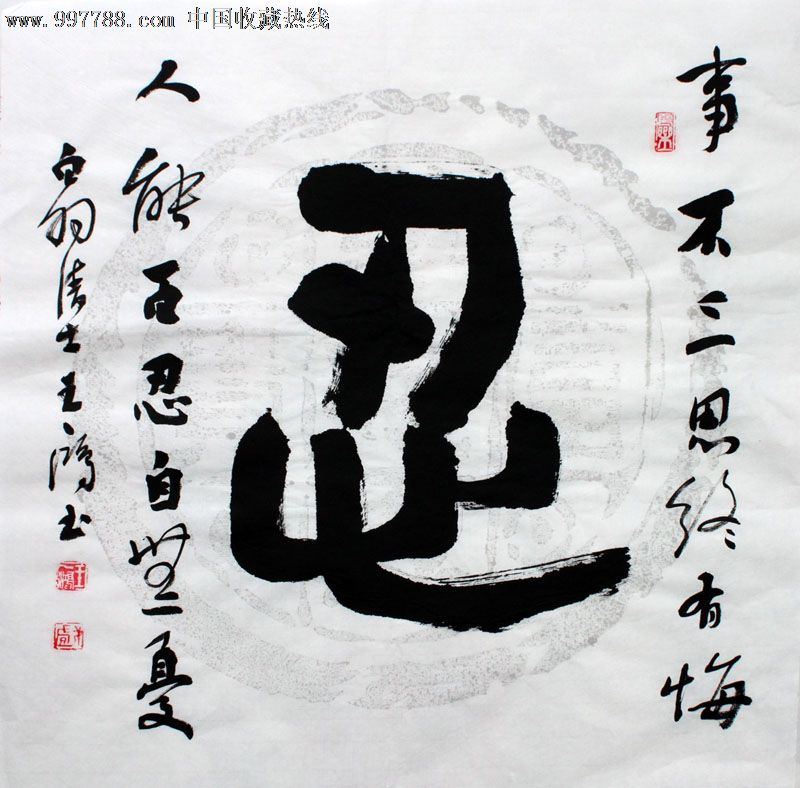 www.997788.com 中国收藏热线
事不三思终有悔
忍
人能百忍自無憂
清士王